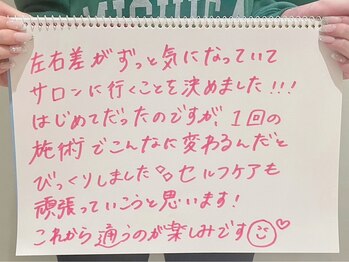 左右差がずっと気になっていて
サロンに行くことを決めました!!!
はじめてだったのですが、1回の
施術でこんなに変わるんだと
びっくりしました。セルフケアも
頑張っていこうと思います!
これから通うのが楽しみです